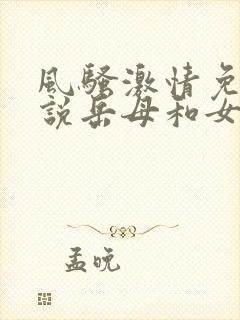 風騷激情免
說岳母和女
孟晚